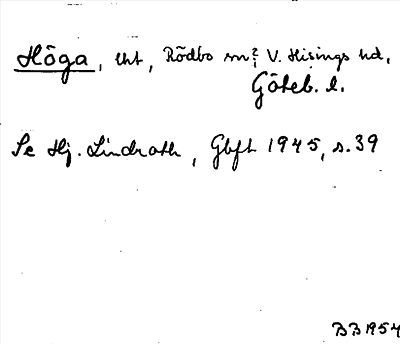 Höga, tht, Rödbo sn? V. Hisings hd,
Göteb. l.
Se Hj. Lindroth, Gbft 1945, s. 39
BB 1954